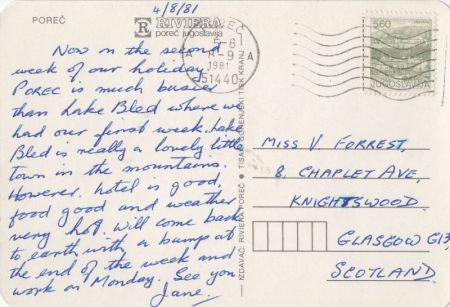 4/8/81
POREČ
RIVIERA
poreč jugoslavija
Now on the second
week of our holiday.
POREC is much busier
than Lake Bled where we
had our first week. Lake
Bled is really a lovely little
town in the mountains.
However, hotel is good,
food good and weather
very hot. Will come back
to earth with a bump at
the end of the week and
work on Monday. See you
Jane.
1981
51440
560
JUGOSLAVIJA
IZDAVAČ: RIVIERA POREČ • TISAK: GORENJSKI TISK KRANJ
MISS V FORREST,
8, CHAPLET AVE,
KNIGHTSWOOD.
GLASGOW G13,
SCOTLAND.